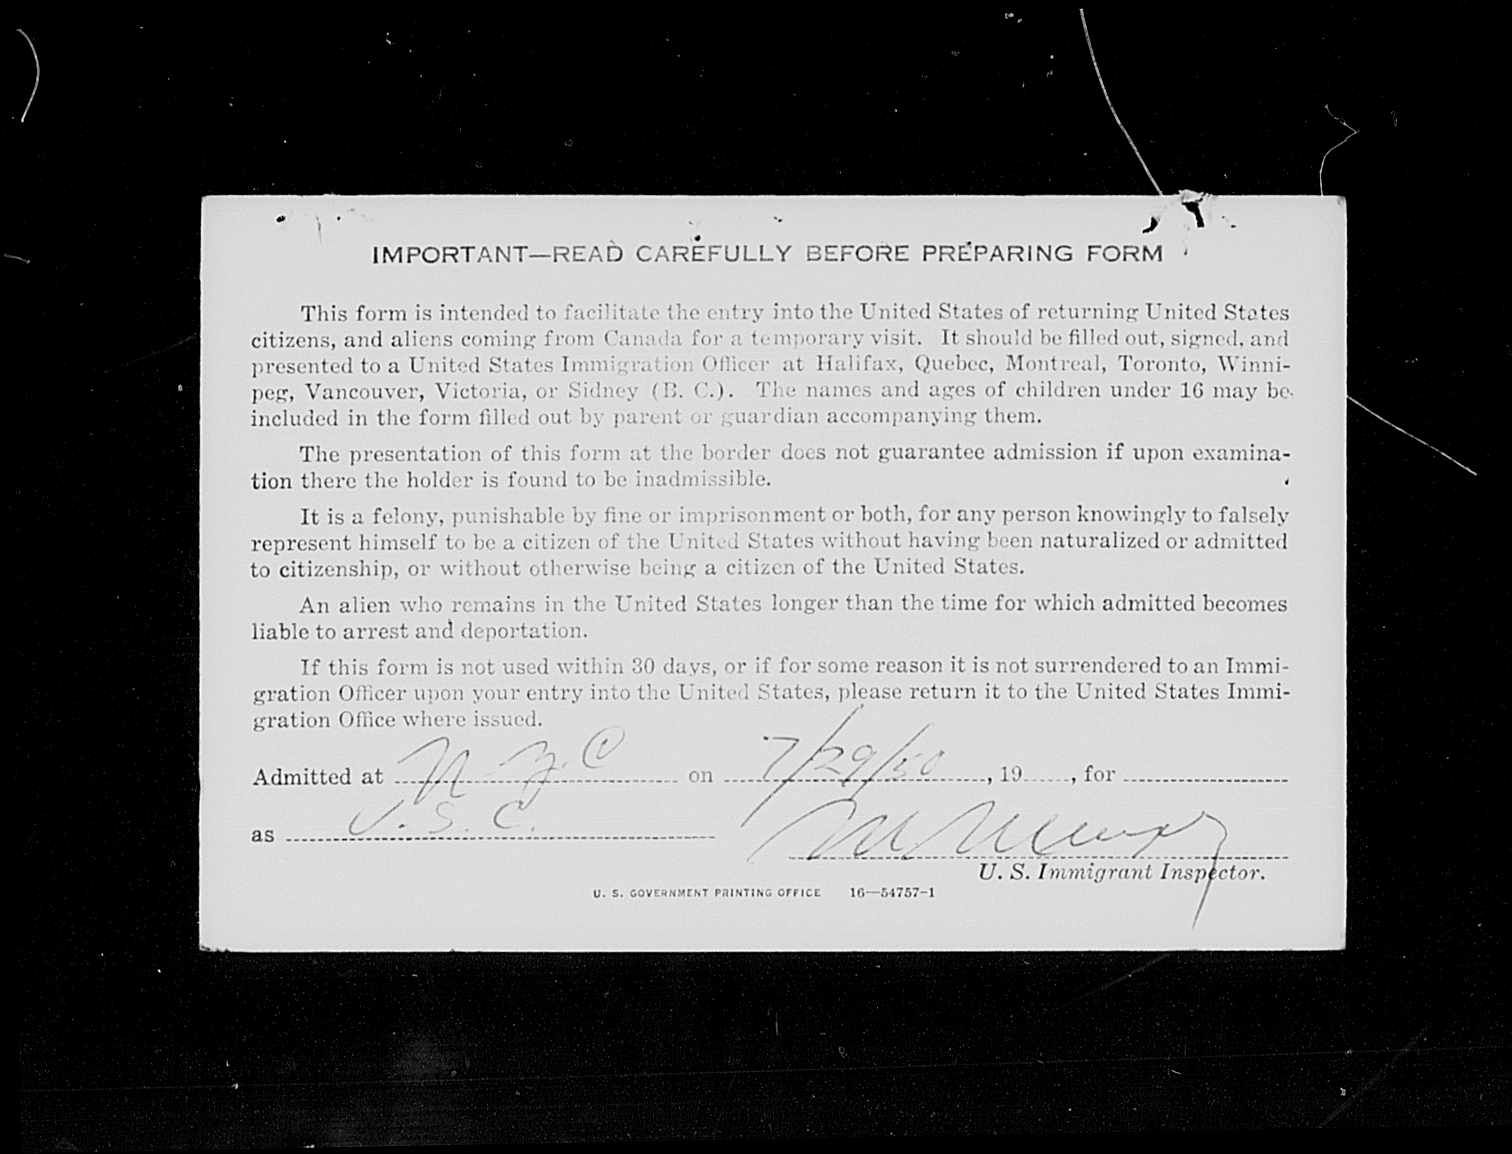 IMPORTANT—READ CAREFULLY BEFORE PREPARING FORM
This form is intended to facilitate the entry into the United States of returning United States
citizens, and aliens coming from Canada for a temporary visit. It should be filled out, signed, and
presented to a United States Immigration Officer at Halifax, Quebec, Montreal, Toronto, Winni-
peg, Vancouver, Victoria, or Sidney (B. C.). The names and ages of children under 16 may be
included in the form filled out by parent or guardian accompanying them.
The presentation of this form at the border does not guarantee admission if upon examina-
tion there the holder is found to be inadmissible.
It is a felony, punishable by fine or imprisonment or both, for any person knowingly to falsely
represent himself to be a citizen of the United States without having been naturalized or admitted
to citizenship, or without otherwise being a citizen of the United States.
An alien who remains in the United States longer than the time for which admitted becomes
liable to arrest and deportation.
If this form is not used within 30 days, or if for some reason it is not surrendered to an Immi-
gration Officer upon your entry into the United States, please return it to the United States Immi-
gration Office where issued.
Admitted at N.Y.C on 7/29/50, 19, for
as U.S.C.
U. S. Immigrant Inspector.
U. S. GOVERNMENT PRINTING OFFICE 16—54757-1